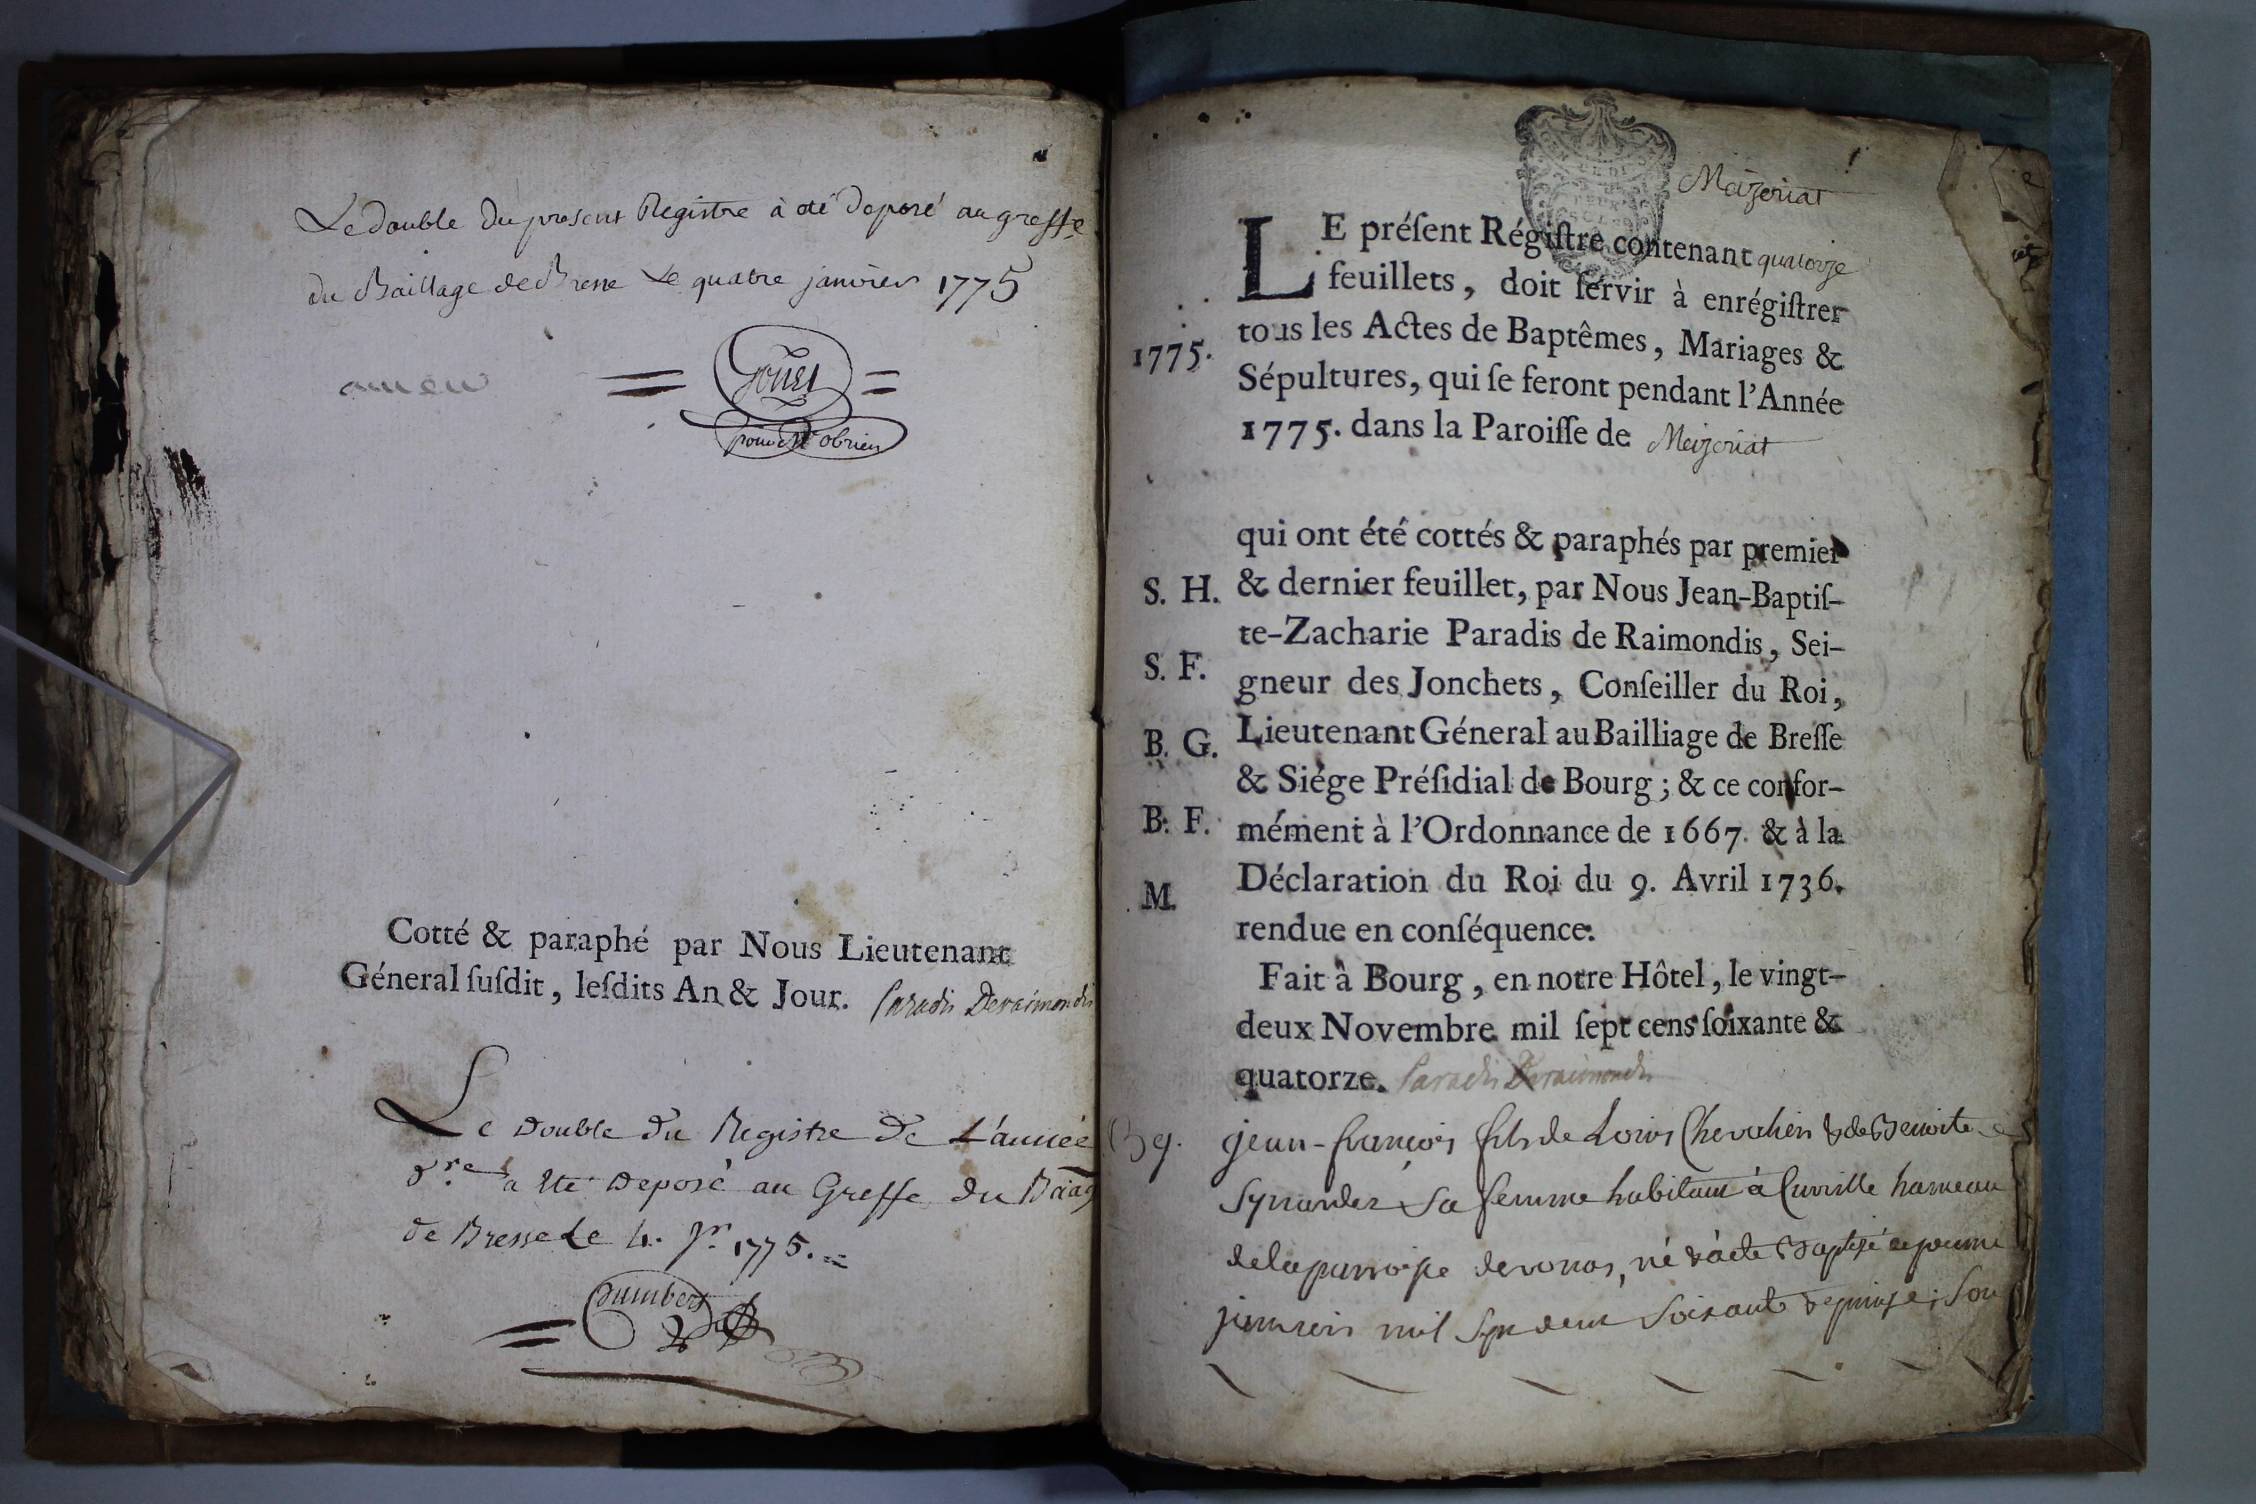 Le double du present Registre à été deposé au greffe
du Baillage de Bresse Le quatre janvier 1775
pour Mr obrien
Cotté & paraphé par Nous Lieutenant
Géneral ſuſdit, leſdits An & Jour. Paradis Deraimondis
Le Double du Registre de L'année
d.re a Eté Deposé au Greffe du Baiag
de Bresse Le 4. Jr. 1775.
Meizeriat
LE préſent Régiſtre contenant quatorze
feuillets, doit ſervir à enrégiſtrer
1775. tous les Actes de Baptêmes, Mariages &
Sépultures, qui ſe feront pendant l'Année
1775. dans la Paroiſſe de Meizeriat
qui ont été cottés & paraphés par premier
S. H. & dernier feuillet, par Nous Jean-Baptiſ-
te-Zacharie Paradis de Raimondis, Sei-
S. F. gneur des Jonchets, Conſeiller du Roi,
B. G. Lieutenant Géneral au Bailliage de Breſſe
& Siége Préſidial de Bourg; & ce confor-
B. F. mément à l'Ordonnance de 1667. & à la
M. Déclaration du Roi du 9. Avril 1736.
rendue en conſéquence.
Fait à Bourg, en notre Hôtel, le vingt-
deux Novembre mil ſept cens ſoixante &
quatorze. Paradis Deraimondis
B g. jean-francois fils de Louis Chevalier & de Benoite
sa femme habitant à Cuville hameau
de la parroisse de vonas, né & à été Baptisé
janvier mil soixante & quinze; son